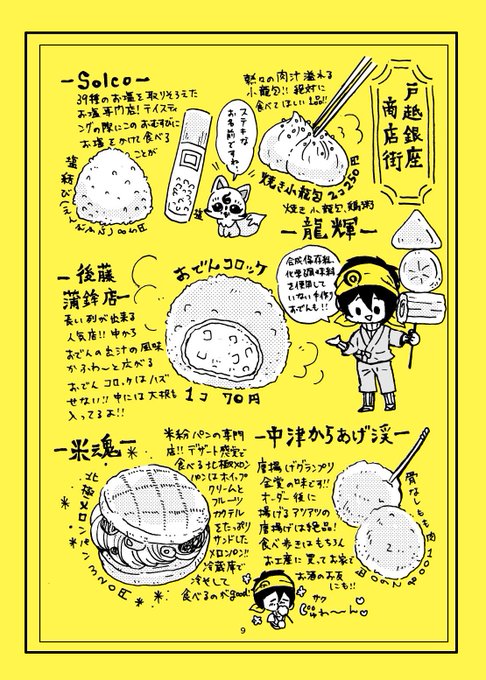 戸越銀座
商店街
ーSolcoー
39種のお塩を取りそろえた
お塩専門店!テイスティ
ングの際にこのおむすびに
お塩をかけて食べる
ことが
ステキな
お名前ですね
熱々の肉汁溢れる
小龍包!!絶対に
食べてほしい1品!!
焼き小龍包 2コ250円
焼き小龍包、鶏粥
ー龍輝ー
合成保存料、
化学調味料
を使用して
いない手作り
おでん!!
ー後藤
蒲鉾店ー
長い列が出来る
人気店!!中から
おでんの出汁の風味
がふわ〜と広がる
おでんコロッケはハズ
せない!!中には大根も
入ってるよ!!
おでんコロッケ
1コ 70円
ー米魂ー
米粉パンの専門
店!!デザート感覚で
食べる北極メロン
パンはホイップ
クリームと
フルーツ
カクテル
をたっぷり
サンドした
メロンパン!!
冷蔵庫で
冷やして
食べるのがgood!
北極メロンパン
ー中津からあげ渓ー
唐揚げグランプリ
金堂の味です!!
オーダー後に
揚げるアツアツの
唐揚げは絶品!
食べ歩きはもちろん
お土産に買ってお家で
お酒のお友
にも!!
骨なしもも
サク
じゅわ〜ん
9